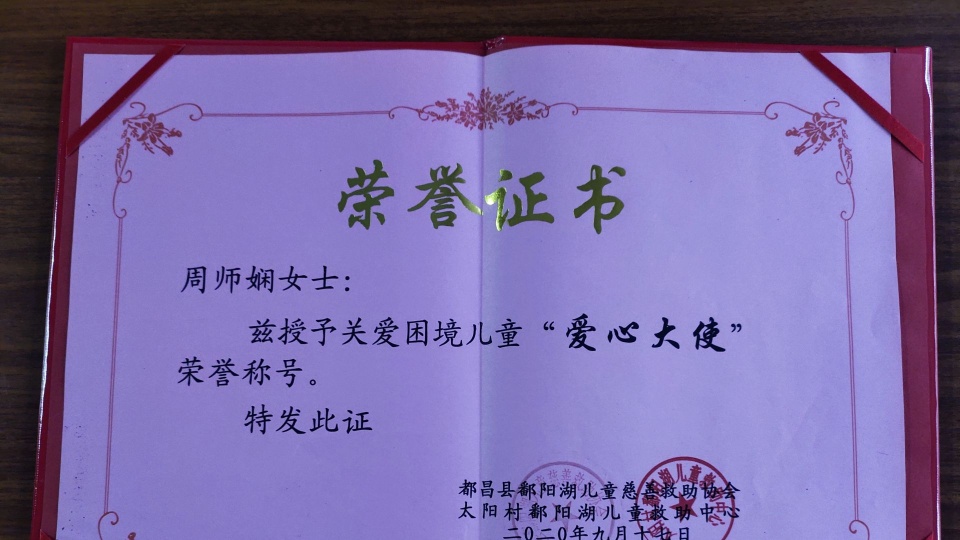 荣誉证书
周师娴女士:
兹授予关爱困境儿童“爱心大使”
荣誉称号。
特发此证
都昌县鄱阳湖儿童慈善救助协会
太阳村鄱阳湖儿童救助中心
二〇二〇年九月十七日